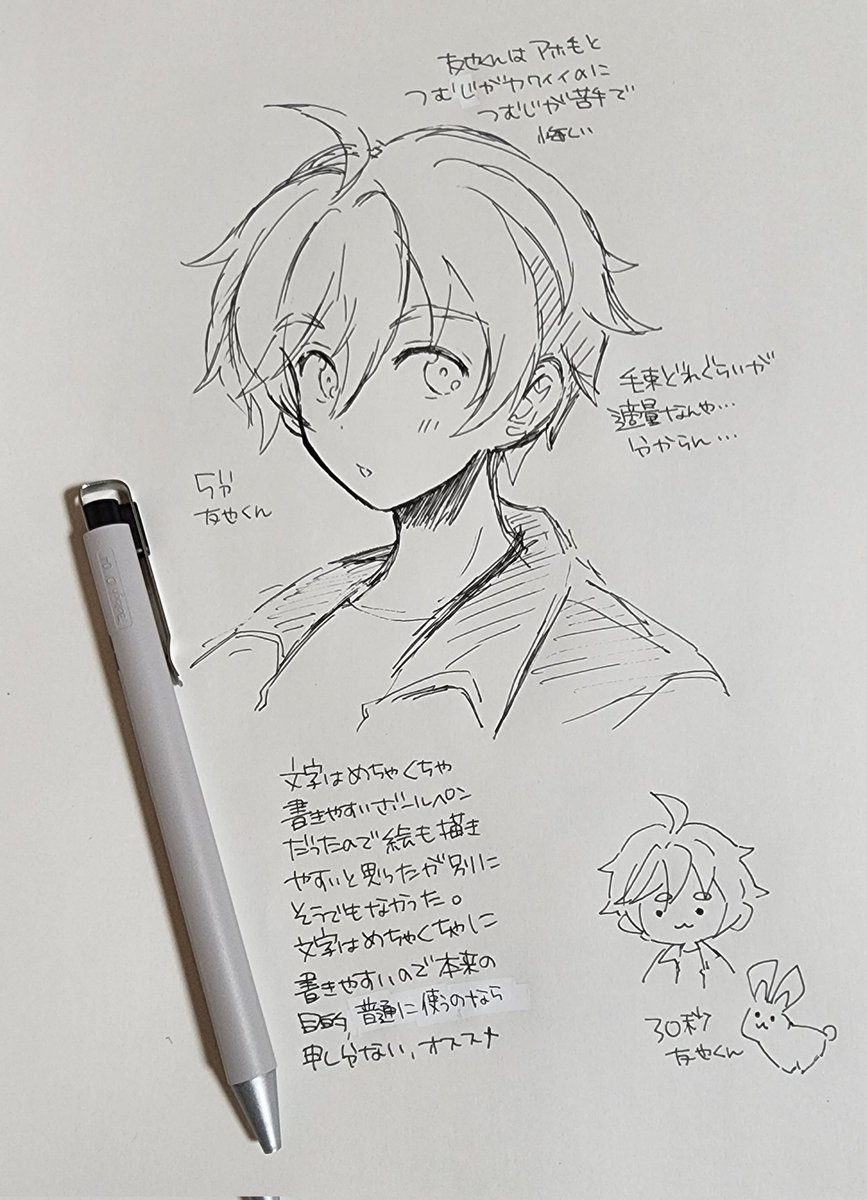 友也くんはアホ毛と
つむじがカワイイのに
つむじが苦手で
悔しい
毛束どれぐらいが
適量なんや…
分からん…
5分
友也くん
文字はめちゃくちゃ
書きやすいボールペン
だったので絵も描き
やすいと思ったが別に
そうでもなかった。
文字はめちゃくちゃに
書きやすいので本来の
目的、普通に使うのなら
申し分ない、オススメ
30秒
友也くん